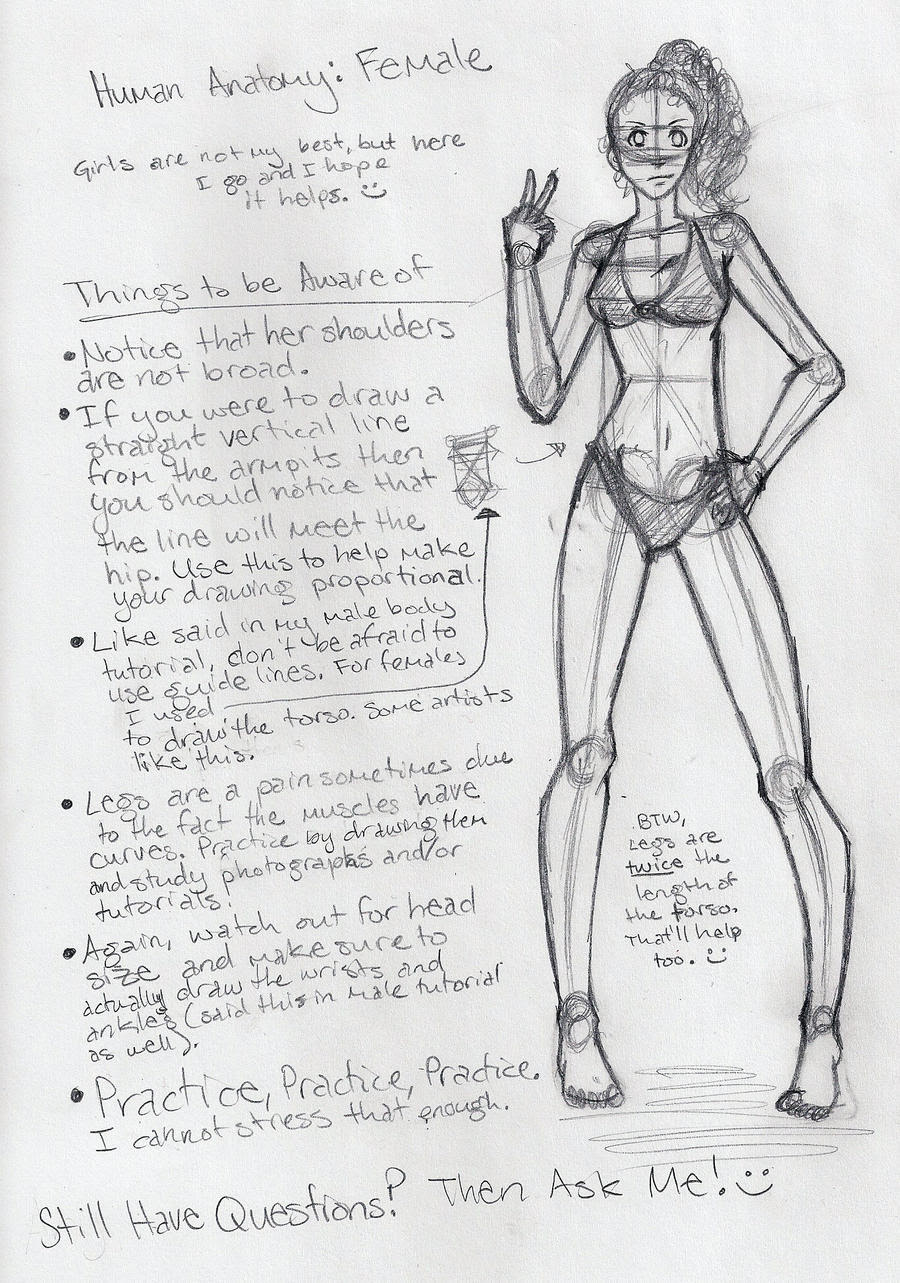 Human Anatomy: Female
Girls are not my best, but here
I go and I hope
it helps.
Things to be Aware of
• Notice that her shoulders
are not broad.
• If you were to draw a
straight vertical line
from the armpits then
you should notice that
the line will meet the
hip. Use this to help make
your drawing proportional.
• Like said in my male body
tutorial, don't be afraid to
use guide lines. For females
I used
to draw the torso. Some artists
like this.
• Legs are a pain sometimes due
to the fact the muscles have
curves. Practice by drawing them
and study photographs and/or
tutorials.
• Again, watch out for head
size and make sure to
actually draw the wrists and
ankles (said this in male tutorial
as well).
• Practice, Practice, Practice.
I cannot stress that enough.
BTW,
Legs are
twice the
length of
the torso.
That'll help
too.
Still Have Questions? Then Ask Me!